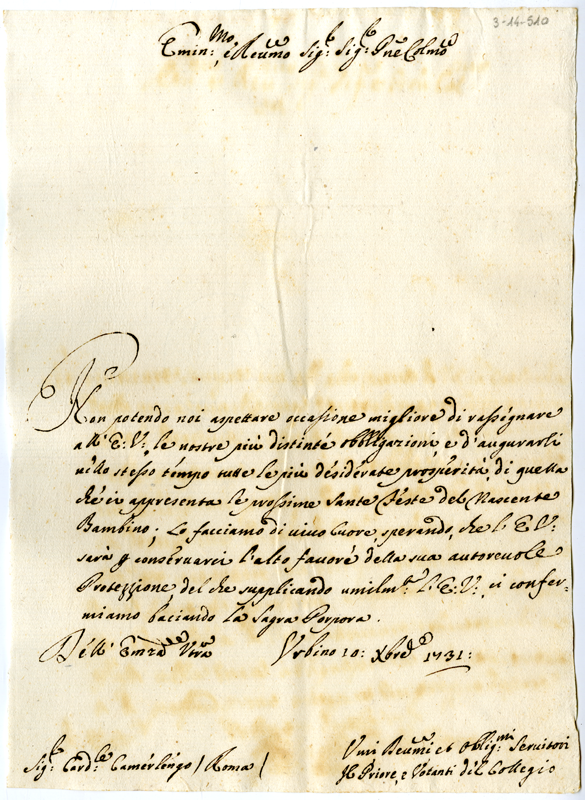 3-14-510
Emin:mo, e Reumo Sig:r Sig:r Pne Colmo
Non potendo noi aspettare occasione migliore di rassegnare
all' E:V:, le nostre più distinte obbligazioni, e d'augurarli
nello stesso tempo tutte le più desiderate prosperità, di quella
che ci appresenta le prossime Sante Feste del Nascente
Bambino; Lo facciamo di vivo Cuore, sperando, che l' E:V:
sarà p conservarci l'alto favore della sua autorevole
Protezzione, del che supplicando umilmte l' E:V:, ci confer-
miamo baciando la Sagra Porpora.
Dell' Emza Vra Urbino 10: Xbre 1731:
Umi Reumi et Obblig:mi Servitori
Sig:r Card:le Camerlengo / Roma / Il Priore, e Votanti del Collegio